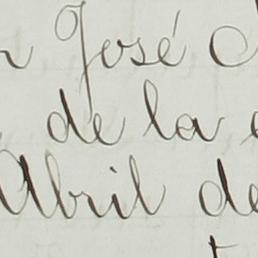 José
de la
Abril de